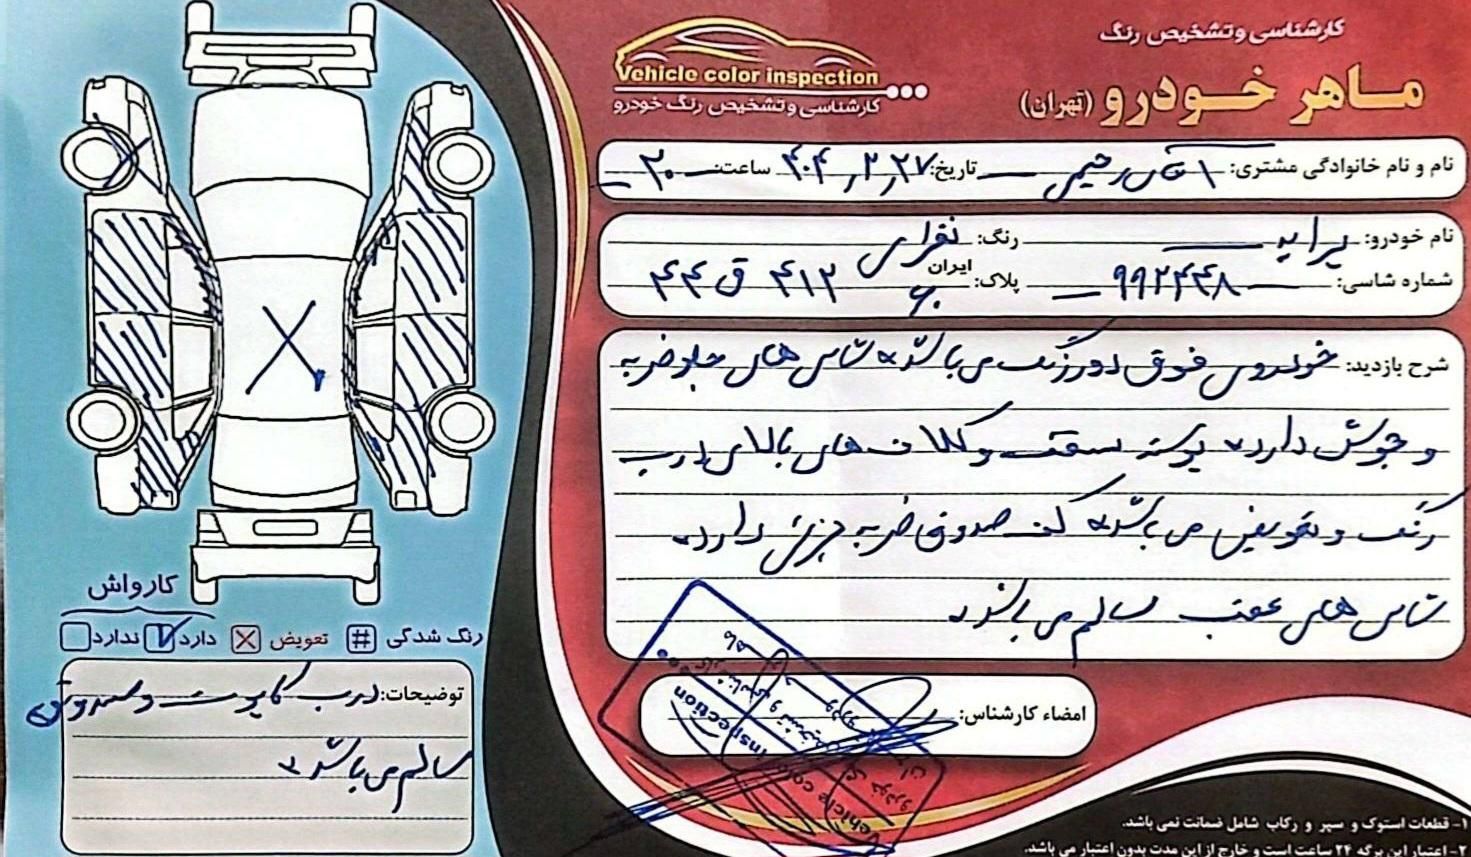 کارشناسی و تشخیص رنگ
ماهر خودرو (تهران)
Vehicle color inspection
کارشناسی و تشخیص رنگ خودرو
نام و نام خانوادگی مشتری: آقای رحیمی تاریخ: ۴۰۴,۲,۲۷ ساعت: ۲۰
نام خودرو: پراید رنگ: نقرای
شماره شاسی: ۹۹۲۴۴۸ پلاک: ایران ۶۰ ۴۱۲ ق ۴۴
شرح بازدید: خودروی فوق دور رنگ می باشد شاسی های جلو ضربه
و جوش دارد پوسته سقف و کلاف های بالای درب
رنگ و تعویض می باشد کف صندوق ضربه جزئی دارد
شاسی های عقب سالم می باشد
امضاء کارشناس:
کارواش
رنگ شدگی # تعویض دارد ندارد
توضیحات: درب کاپوت و صندوق
سالم می باشد
۱- قطعات استوک و سپر و رکاب شامل ضمانت نمی باشد.
۲- اعتبار این برگه ۲۴ ساعت است و خارج از این مدت بدون اعتبار می باشد.